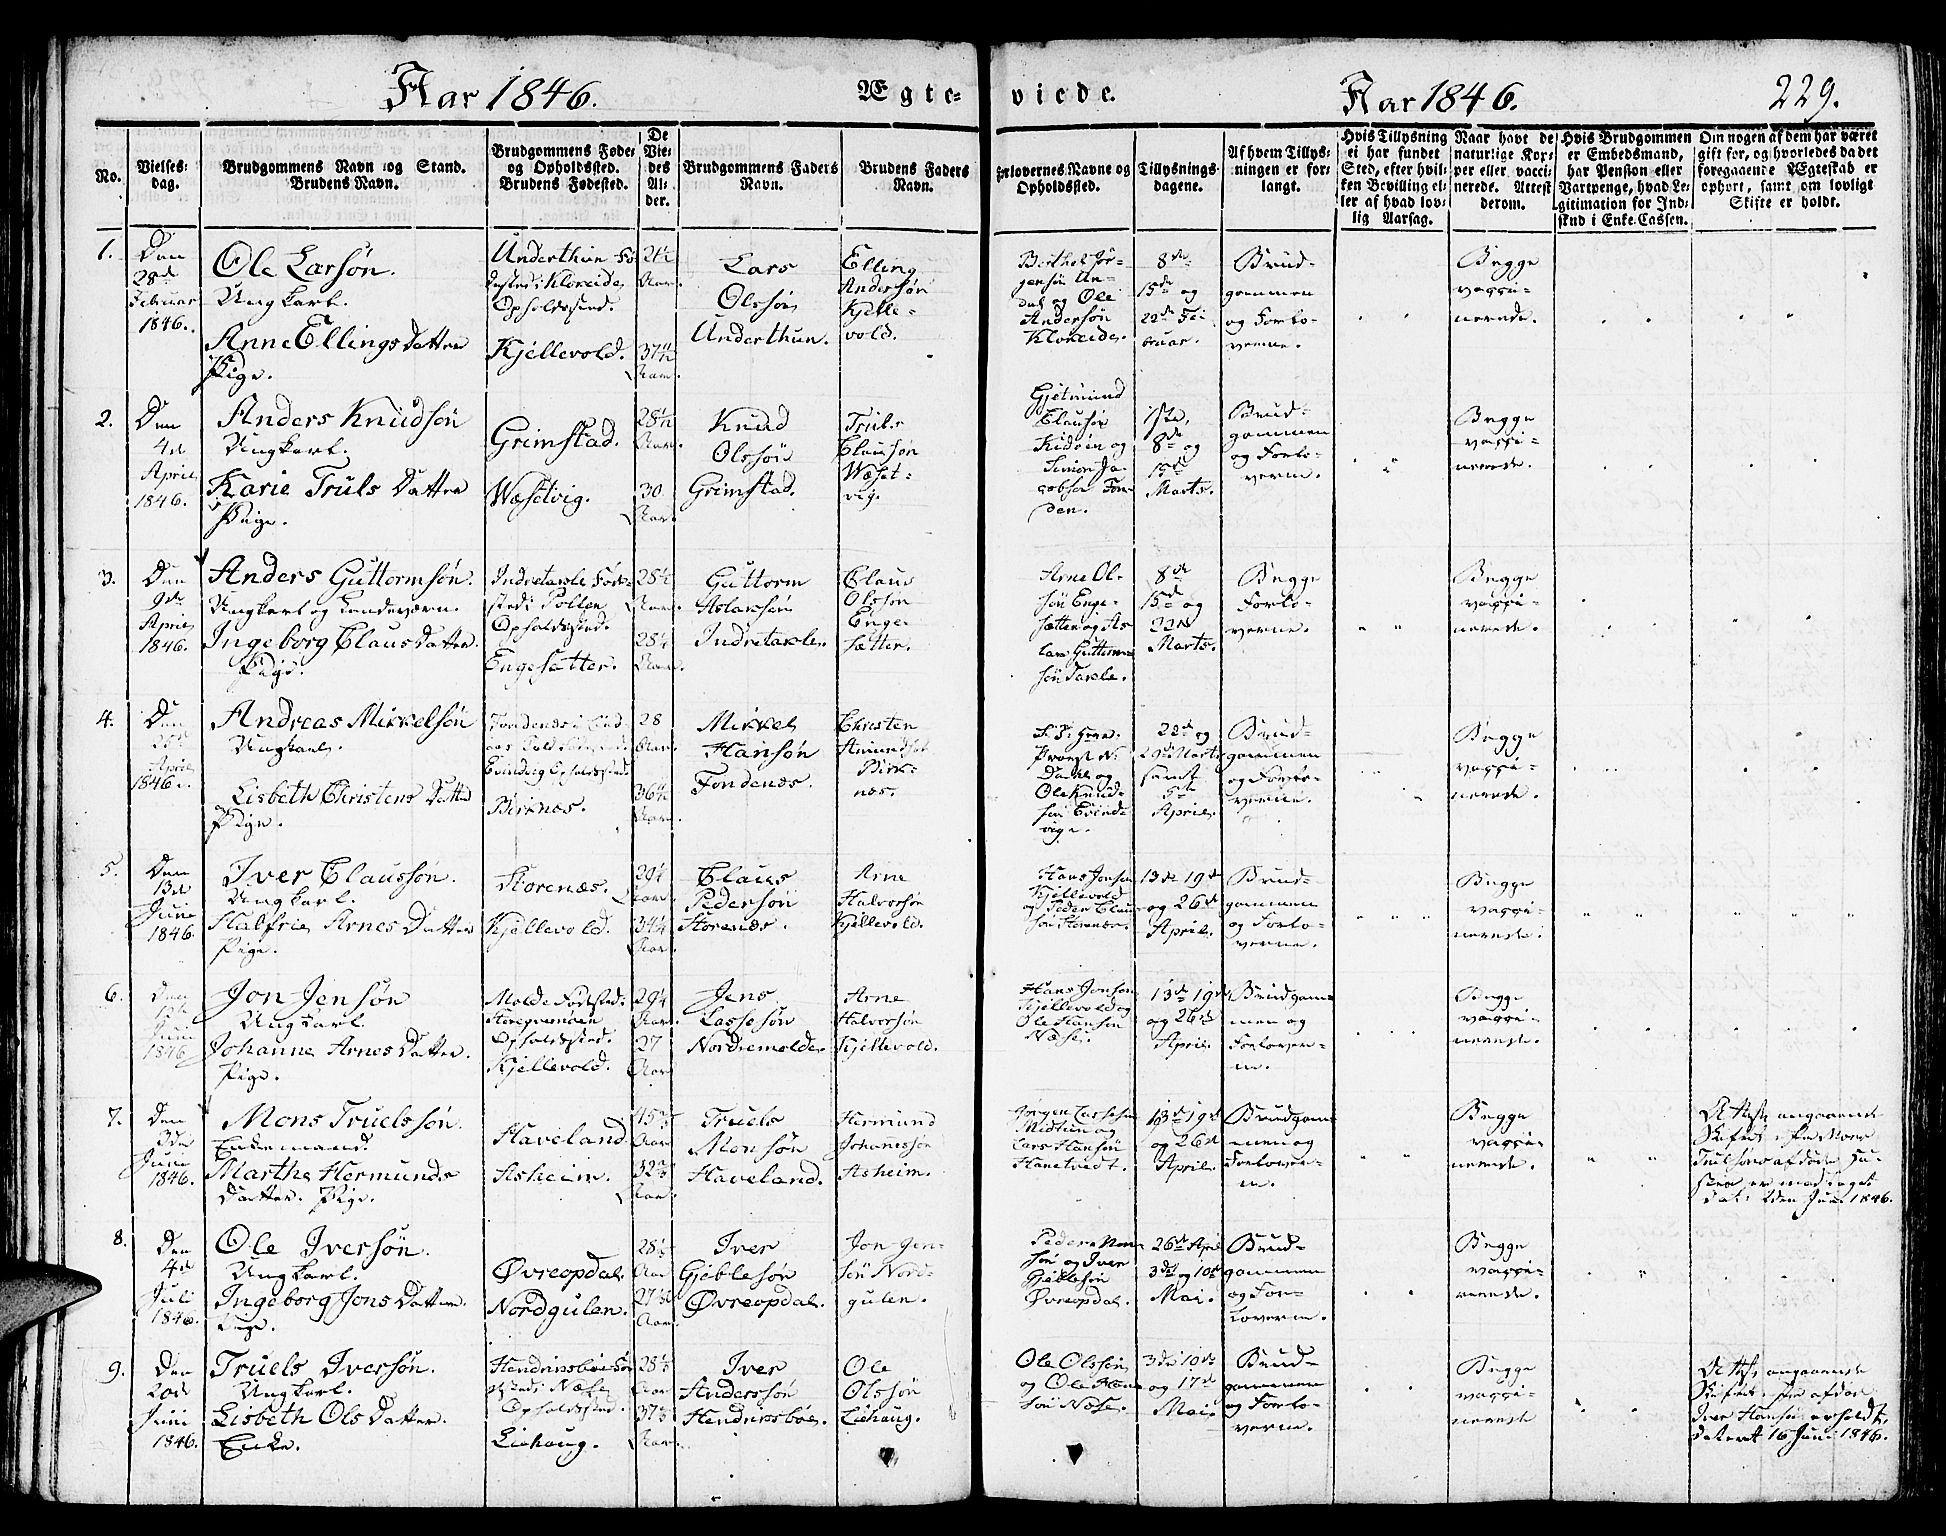 Aar 1846.
Ægte-
viede.
Aar 1846.
229.
No.
Vielses-
dag.
Brudgommens Navn og Stand.
Brudens Navn.
Brudgommens Føde-
og Opholdssted.
Brudens Fødested.
De
Vie-
des
Al-
der.
Brudgommens Faders
Navn.
Brudens Faders
Navn.
Forlovernes Navne og
Opholdssted.
Tillysnings-
dagene.
Af hvem Tillys-
ningen er for-
langt.
Hvis Tillysning
ei har fundet
Sted, efter hvil-
ken Bevilling el-
ler af hvad lov-
lig Aarsag.
Naar havt de
naturlige Kop-
per eller vacci-
nerede. Attest
derom.
Hvis Brudgommen
er Embedsmand,
har Pension eller
Vartpenge, hvad Le-
gitimation for Ind-
skud i Enke-Cassen.
Om nogen af dem har været
gift før, og hvorledes da det
foregaaende Ægteskab er
ophørt, samt om lovligt
Skifte er holdt.
1.
Den
28de
Februar
1846.
Ole Larsøn.
Ungkarl.
Anne Ellings Datter
Pige.
Underthun Fø-
dested: Kloveide
Opholdssted.
Kjellevold.
Aar.
Aar.
Lars
Olssøn
Underthun.
Elling
Andersøn
Kjelle-
vold.
Berthel Jør-
gensøn Un-
dal og Ole
Andersøn
Kloveide.
8de
15de og
22de Fe-
bruar.
Brud-
gommen
og Forlo-
verne.
Begge
vacci-
nerede.
2.
Den
4de
April
1846.
Anders Knudsøn
Ungkarl.
Karie Truls Datter
Pige.
Grimstad.
Wæsetvig.
28½
Aar.
30
Aar.
Knud
Olssøn
Grimstad.
Truls
Claussøn
Wæset-
vig.
Gjetmund
Claussøn
og
Simon Ja-
cobsen
den.
1ste,
8de og
15de
Marts.
Brud-
gommen
og Forlo-
verne.
Begge
vacci-
nerede.
3.
Den
9de
April
1846.
Anders Guttormsøn.
Ungkarl og Landeværn.
Ingeborg Claus Datter.
Pige.
Indretakle Føde-
sted: Pollen
Opholdssted.
Engesætter.
Aar.
Aar.
Guttorm
Aslaksøn
Indretakle.
Claus
Olsson
Enge-
sætter.
Arne Ol-
søn Enge-
sætter og As-
lak Guttorm-
søn Takle.
8de
15de og
22de
Marts.
Begge
Forlo-
verne.
Begge
vacci-
nerede.
4.
Den
April
1846.
Andreas Mikkelsøn
Ungkarl.
Lisbeth Christens Datter
Pige.
Evindvig Opholdssted.
Birknæs.
28
Aar.
36½
Aar.
Mikkel
Hansøn
Fondenæs.
Christen
Amundsøn
Birk-
næs.
Provst N.
Dahl og
Ole Knud-
søn Evind-
vig.
22de og
29de Marts
samt
5te
April.
Brud-
gommen
og Forlo-
verne.
Begge
vacci-
nerede.
5.
Den
13de
Juni
1846.
Iver Claussøn.
Ungkarl.
Halfrie Arnes Datter
Pige.
Storenæs.
Kjellevold.
29¼
Aar.
34¼
Aar.
Claus
Pedersøn
Storenæs.
Arne
Halvorsøn
Kjellevold.
Hans Jonsøn
Kjellevold
og Peder Claus-
søn Storenæs.
13de 19de
og 26de
April.
Brud-
gommen
og Forlo-
verne.
Begge
vacci-
nerede.
6.
Den
Juni
1846
Jon Jensøn
Ungkarl.
Johanne Arnes Datter.
Pige.
Molde Fødested:
Opholdssted.
Kjellevold.
29¼
Aar.
27
Aar
Jens
Lassesøn
Nordremolde.
Arne
Halvorsøn
Kjellevold.
Hans Jonsøn
Kjellevold og
Ole Hansøn
Næse.
13de 19de
og 26de
April.
Brudgom-
men og
Forlover-
ne.
Begge
vacci-
nerede.
7.
Den
3de
Juni
1846.
Mons Truelssøn.
Enkemand.
Marthe Hermunds
Datter. Pige.
Haveland.
Asheim.
Aar
Aar.
Truels
Monsøn
Haveland.
Hermund
Johannessøn
Asheim.
Jørgen Lassesøn
Midtun og
Lars Hansøn
Hanetvedt.
13de 19de
og 26de
April.
Brudgom-
men og
Forlover-
ne.
Begge
vacci-
nerede.
Attest angaaende
Skifte
afdøde Hu-
stru er
dat: den Juni 1846.
8.
Den
4de
Juli
1846.
Ole Iversøn.
Ungkarl.
Ingeborg Jons Datter.
Pige.
Øvreopdal.
Nordgulen.
Aar
Aar.
Iver
Gjeblesøn
Øvreopdal.
Jon Jen-
søn Nord-
gulen.
Peder Mon-
søn og Iver
Gjeblesøn
Øvreopdal.
26de April
3de og 10de
Mai.
Brud-
gommen
og For-
loverne.
Begge
vacci-
nerede.
9.
Den
20de
Juni
1846.
Truels Iversøn.
Ungkarl.
Lisbeth Ols Datter.
Enke.
Opholdssted.
Liehaug.
Aar
Aar.
Iver
Anderssøn
Ole
Olssøn
Liehaug.
Ole Olssøn
og Ole Han-
søn Næse.
3de 10de
og 17de
Mai.
Brud-
gommen
og Forlo-
verne.
Begge
vacci-
nerede
Attest angaaende
Skifte afdøde
Iver Hansøn er holdt,
dateret 16 Juni 1846.